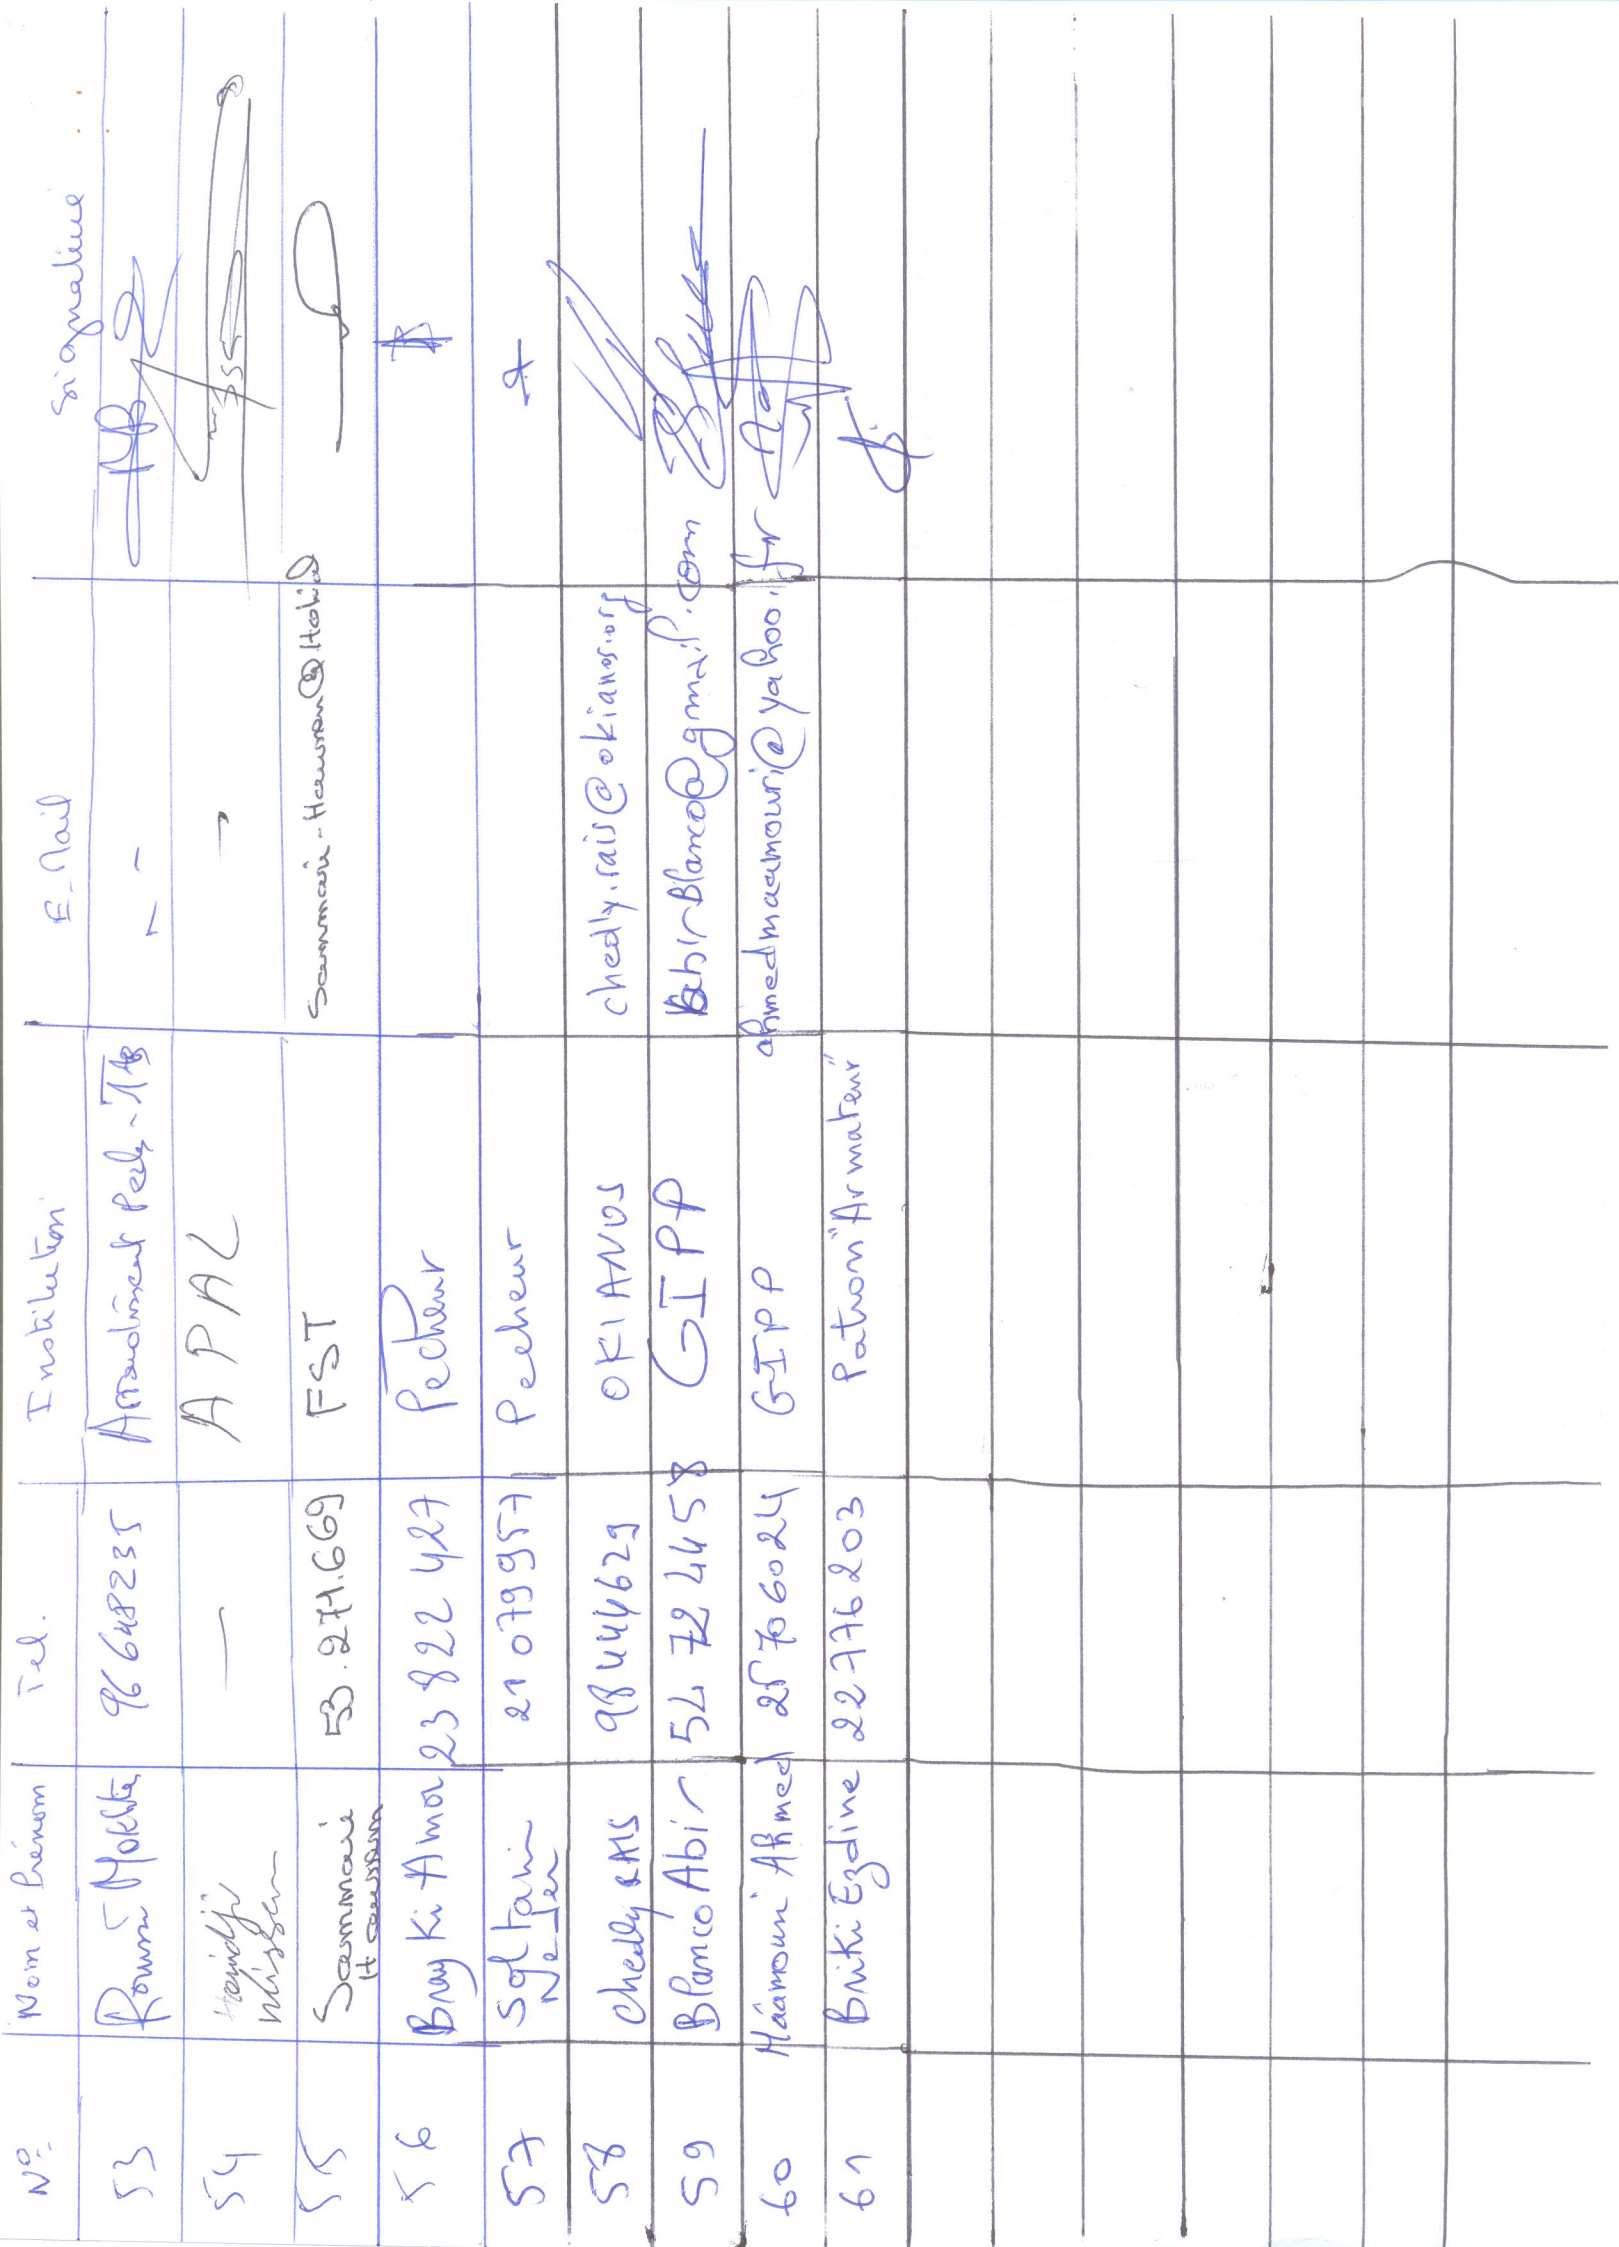 N° Nom et Prénom Tel. Institution E-Mail Signature
53 Romdhani Mokhtar 96648235 Arrondissement Pêche - -
54 Haidji Wissem — APAL -
55 Sammari Haunen 53.271.669 FST
56 Brayki Amor 23 822 427 Pecheur
57 Soltani Nejer 21 079957 Pecheur
58 chedly RAIS 98444629 OKIANOS chedly.rais@okianos.org
59 Blanco Abir 54 72 4458 GIPP abirBlanco@gmail.com
60 Máámouri Ahmed 25706024 GIPP ahmedmaamouri@yahoo.fr
61 Briki Ezdine 22776203 Patron "Armateur"